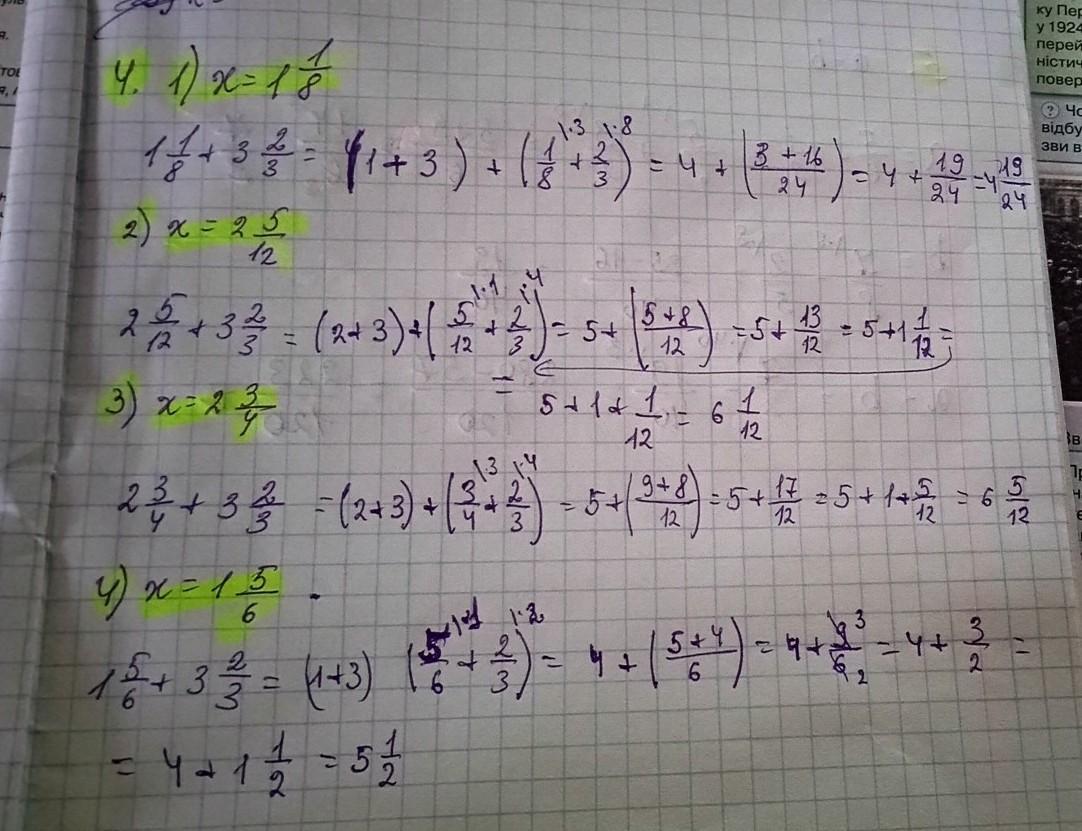 4. 1) x = 1 1/8
1 1/8 + 3 2/3 = (1 + 3) + (1/8 \·3 + 2/3 \·8) = 4 + (3 + 16/24) = 4 + 19/24 = 4 19/24
2) x = 2 5/12
2 5/12 + 3 2/3 = (2 + 3) + (5/12 \·1 + 2/3 \·4) = 5 + (5 + 8/12) = 5 + 13/12 = 5 + 1 1/12 =
= 5 + 1 + 1/12 = 6 1/12
3) x = 2 3/4
2 3/4 + 3 2/3 = (2 + 3) + (3/4 \·3 + 2/3 \·4) = 5 + (9 + 8/12) = 5 + 17/12 = 5 + 1 + 5/12 = 6 5/12
4) x = 1 5/6
1 5/6 + 3 2/3 = (1 + 3) (5/6 \·1 + 2/3 \·2) = 4 + (5 + 4/6) = 4 + 9 3/6 2 = 4 + 3/2 =
= 4 + 1 1/2 = 5 1/2
ку Пер
у 1924
перей
ністич
повер
? Чо
відбу
зви в